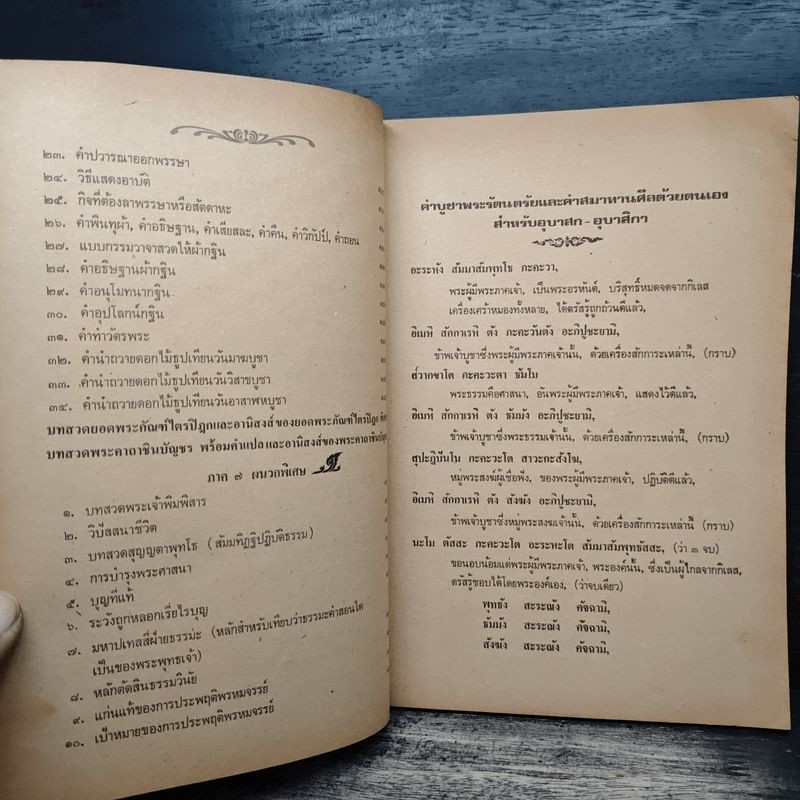 ๒๓. คำปวารณาออกพรรษา
๒๔. วิธีแสดงอาบัติ
๒๕. กิจที่ต้องลาพรรษาหรือสัตตาหะ
๒๖. คำพินทุผ้า, คำอธิษฐาน, คำเสียสละ, คำคืน, คำวิกัปป์, คำถอน
๒๗. แบบกรรมวาจาสวดให้ผ้ากฐิน
๒๘. คำอธิษฐานผ้ากฐิน
๒๙. คำอนุโมทนากฐิน
๓๐. คำอุปโลกน์กฐิน
๓๑. คำทำวัตรพระ
๓๒. คำนำถวายดอกไม้ธูปเทียนวันมาฆบูชา
๓๓. คำนำถวายดอกไม้ธูปเทียนวันวิสาขบูชา
๓๔. คำนำถวายดอกไม้ธูปเทียนวันอาสาฬหบูชา
บทสวดยอดพระกัณฑ์ไตรปิฎกและอานิสงส์ของยอดพระกัณฑ์ไตรปิฎก
บทสวดพระคาถาชินบัญชร พร้อมคำแปลและอานิสงส์ของพระคาถาชินบัญชร
ภาค ๗ ผนวกพิเศษ
๑. บทสวดพระเจ้าพิมพิสาร
๒. วิปัสสนาชีวิต
๓. บทสวดสุญญตาพุทโธ (สัมมทิฏฐิปฏิบัติธรรม)
๔. การบำรุงพระศาสนา
๕. บุญที่แท้
๖. ระวังถูกหลอกเรี่ยไรบุญ
๗. มหาปเทสสี่ฝ่ายธรรมะ (หลักสำหรับเทียบว่าธรรมะคำสอนใด
เป็นของพระพุทธเจ้า)
๘. หลักตัดสินธรรมวินัย
๙. แก่นแท้ของการประพฤติพรหมจรรย์
๑๐. เป้าหมายของการประพฤติพรหมจรรย์
คำบูชาพระรัตนตรัยและคำสมาทานศีลด้วยตนเอง
สำหรับอุบาสก - อุบาสิกา
อะระหัง สัมมาสัมพุทโธ ภะคะวา,
พระผู้มีพระภาคเจ้า, เป็นพระอรหันต์, บริสุทธิ์หมดจดจากกิเลส
เครื่องเศร้าหมองทั้งหลาย, ได้ตรัสรู้ถูกถ้วนดีแล้ว,
อิเมหิ สักกาเรหิ ตัง ภะคะวันตัง อะภิปูชะยามิ,
ข้าพเจ้าบูชาซึ่งพระผู้มีพระภาคเจ้านั้น, ด้วยเครื่องสักการะเหล่านี้, (กราบ)
ส๎วากขาโต ภะคะวะตา ธัมโม
พระธรรมคือศาสนา, อันพระผู้มีพระภาคเจ้า, แสดงไว้ดีแล้ว,
อิเมหิ สักกาเรหิ ตัง ธัมมัง อะภิปูชะยามิ,
ข้าพเจ้าบูชาซึ่งพระธรรมเจ้านั้น, ด้วยเครื่องสักการะเหล่านี้, (กราบ)
สุปะฏิปันโน ภะคะวะโต สาวะกะสังโฆ,
หมู่พระสงฆ์ผู้เชื่อฟัง, ของพระผู้มีพระภาคเจ้า, ปฏิบัติดีแล้ว,
อิเมหิ สักกาเรหิ ตัง สังฆัง อะภิปูชะยามิ,
ข้าพเจ้าบูชาซึ่งหมู่พระสงฆเจ้านั้น, ด้วยเครื่องสักการะเหล่านี้ (กราบ)
นะโม ตัสสะ ภะคะวะโต อะระหะโต สัมมาสัมพุทธัสสะ, (ว่า ๓ จบ)
ขอนอบน้อมแด่พระผู้มีพระภาคเจ้า, พระองค์นั้น, ซึ่งเป็นผู้ไกลจากกิเลส,
ตรัสรู้ชอบได้โดยพระองค์เอง, (ว่าจบเดียว)
พุทธัง สะระณัง คัจฉามิ,
ธัมมัง สะระณัง คัจฉามิ,
สังฆัง สะระณัง คัจฉามิ,